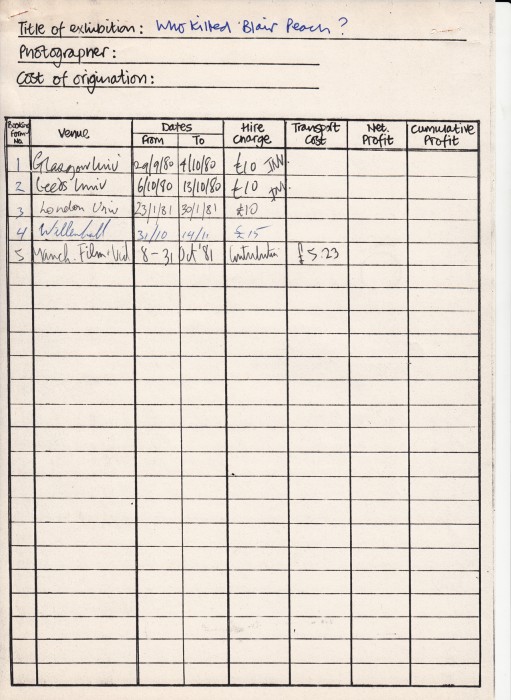 Title of exhibition: Who killed Blair Peach?
Photographer:
Cost of origination:
Booking Form No. Venue Dates From To Hire Charge Transport Cost Net. Profit Cumulative Profit
1 Glasgow Univ 29/9/80 4/10/80 £10 INV.
2 Leeds Univ 6/10/80 13/10/80 £10 INV.
3 London Univ 23/1/81 30/1/81 £10
4 Willenhall 31/10 14/11 £15
5 Manch. Film & Vid 8-31 Oct '81 Contribution £5.23